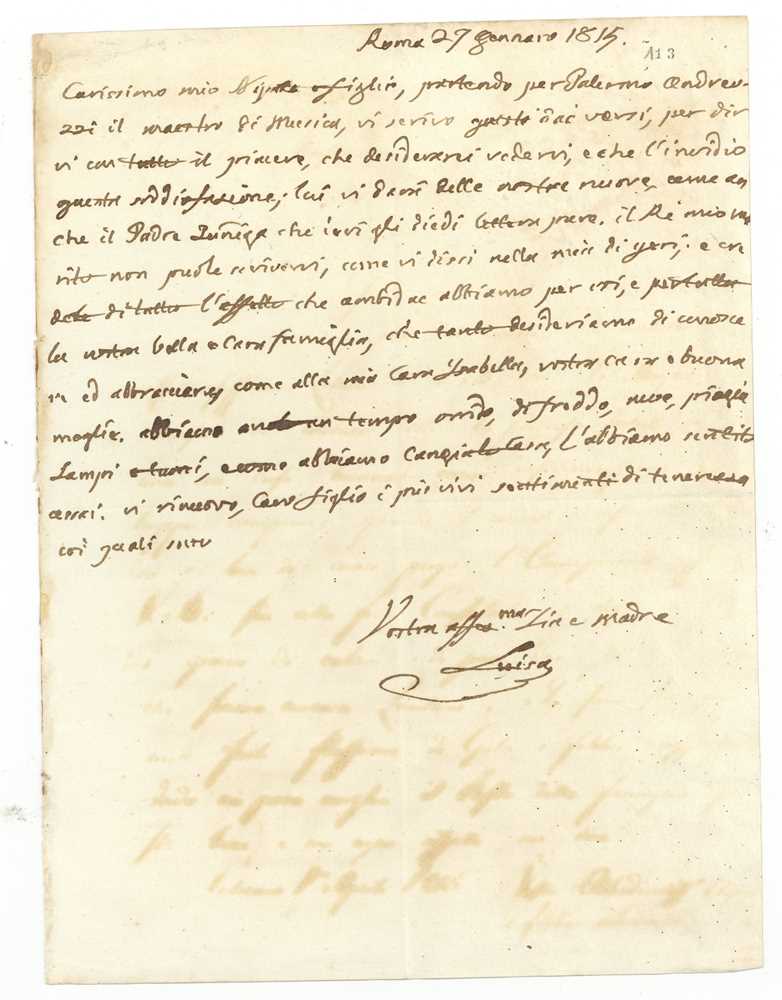 Roma 27 Gennaro 1815.
113
Carissimo mio Nipote e figlio, partendo per Palermo Andreo-
zzi il maestro di Musica, vi scrivo questi due versi, per dir
vi con tutto il piacere, che desidererei vedervi, e che l'invidio
questa soddisfazione; lui vi darà delle nostre nuove, come an
che il Padre Zuniga che ieri gli diedi lettera pure. il Rè mio ma
rito non puole scrivervi, come vi dissi nella mia di ieri; e cre
dete di tutto l'affetto che ambidue abbiamo per voi, e per tutta
la vostra bella e cara famiglia, che tanto desideriamo di conosce
re ed abbracciare, come alla mia Cara Isabella, vostra cara e buona
moglie. abbiamo un tempo orrido, di freddo, neve, pioggia
Lampi e tuoni, e come abbiamo Cangiato Casa, l'abbiamo sentito
assai. vi rinuovo, Caro figlio i più vivi sentimenti di tenerezza
coi quali sono
Vostra affez.ma Zia e Madre
Luisa